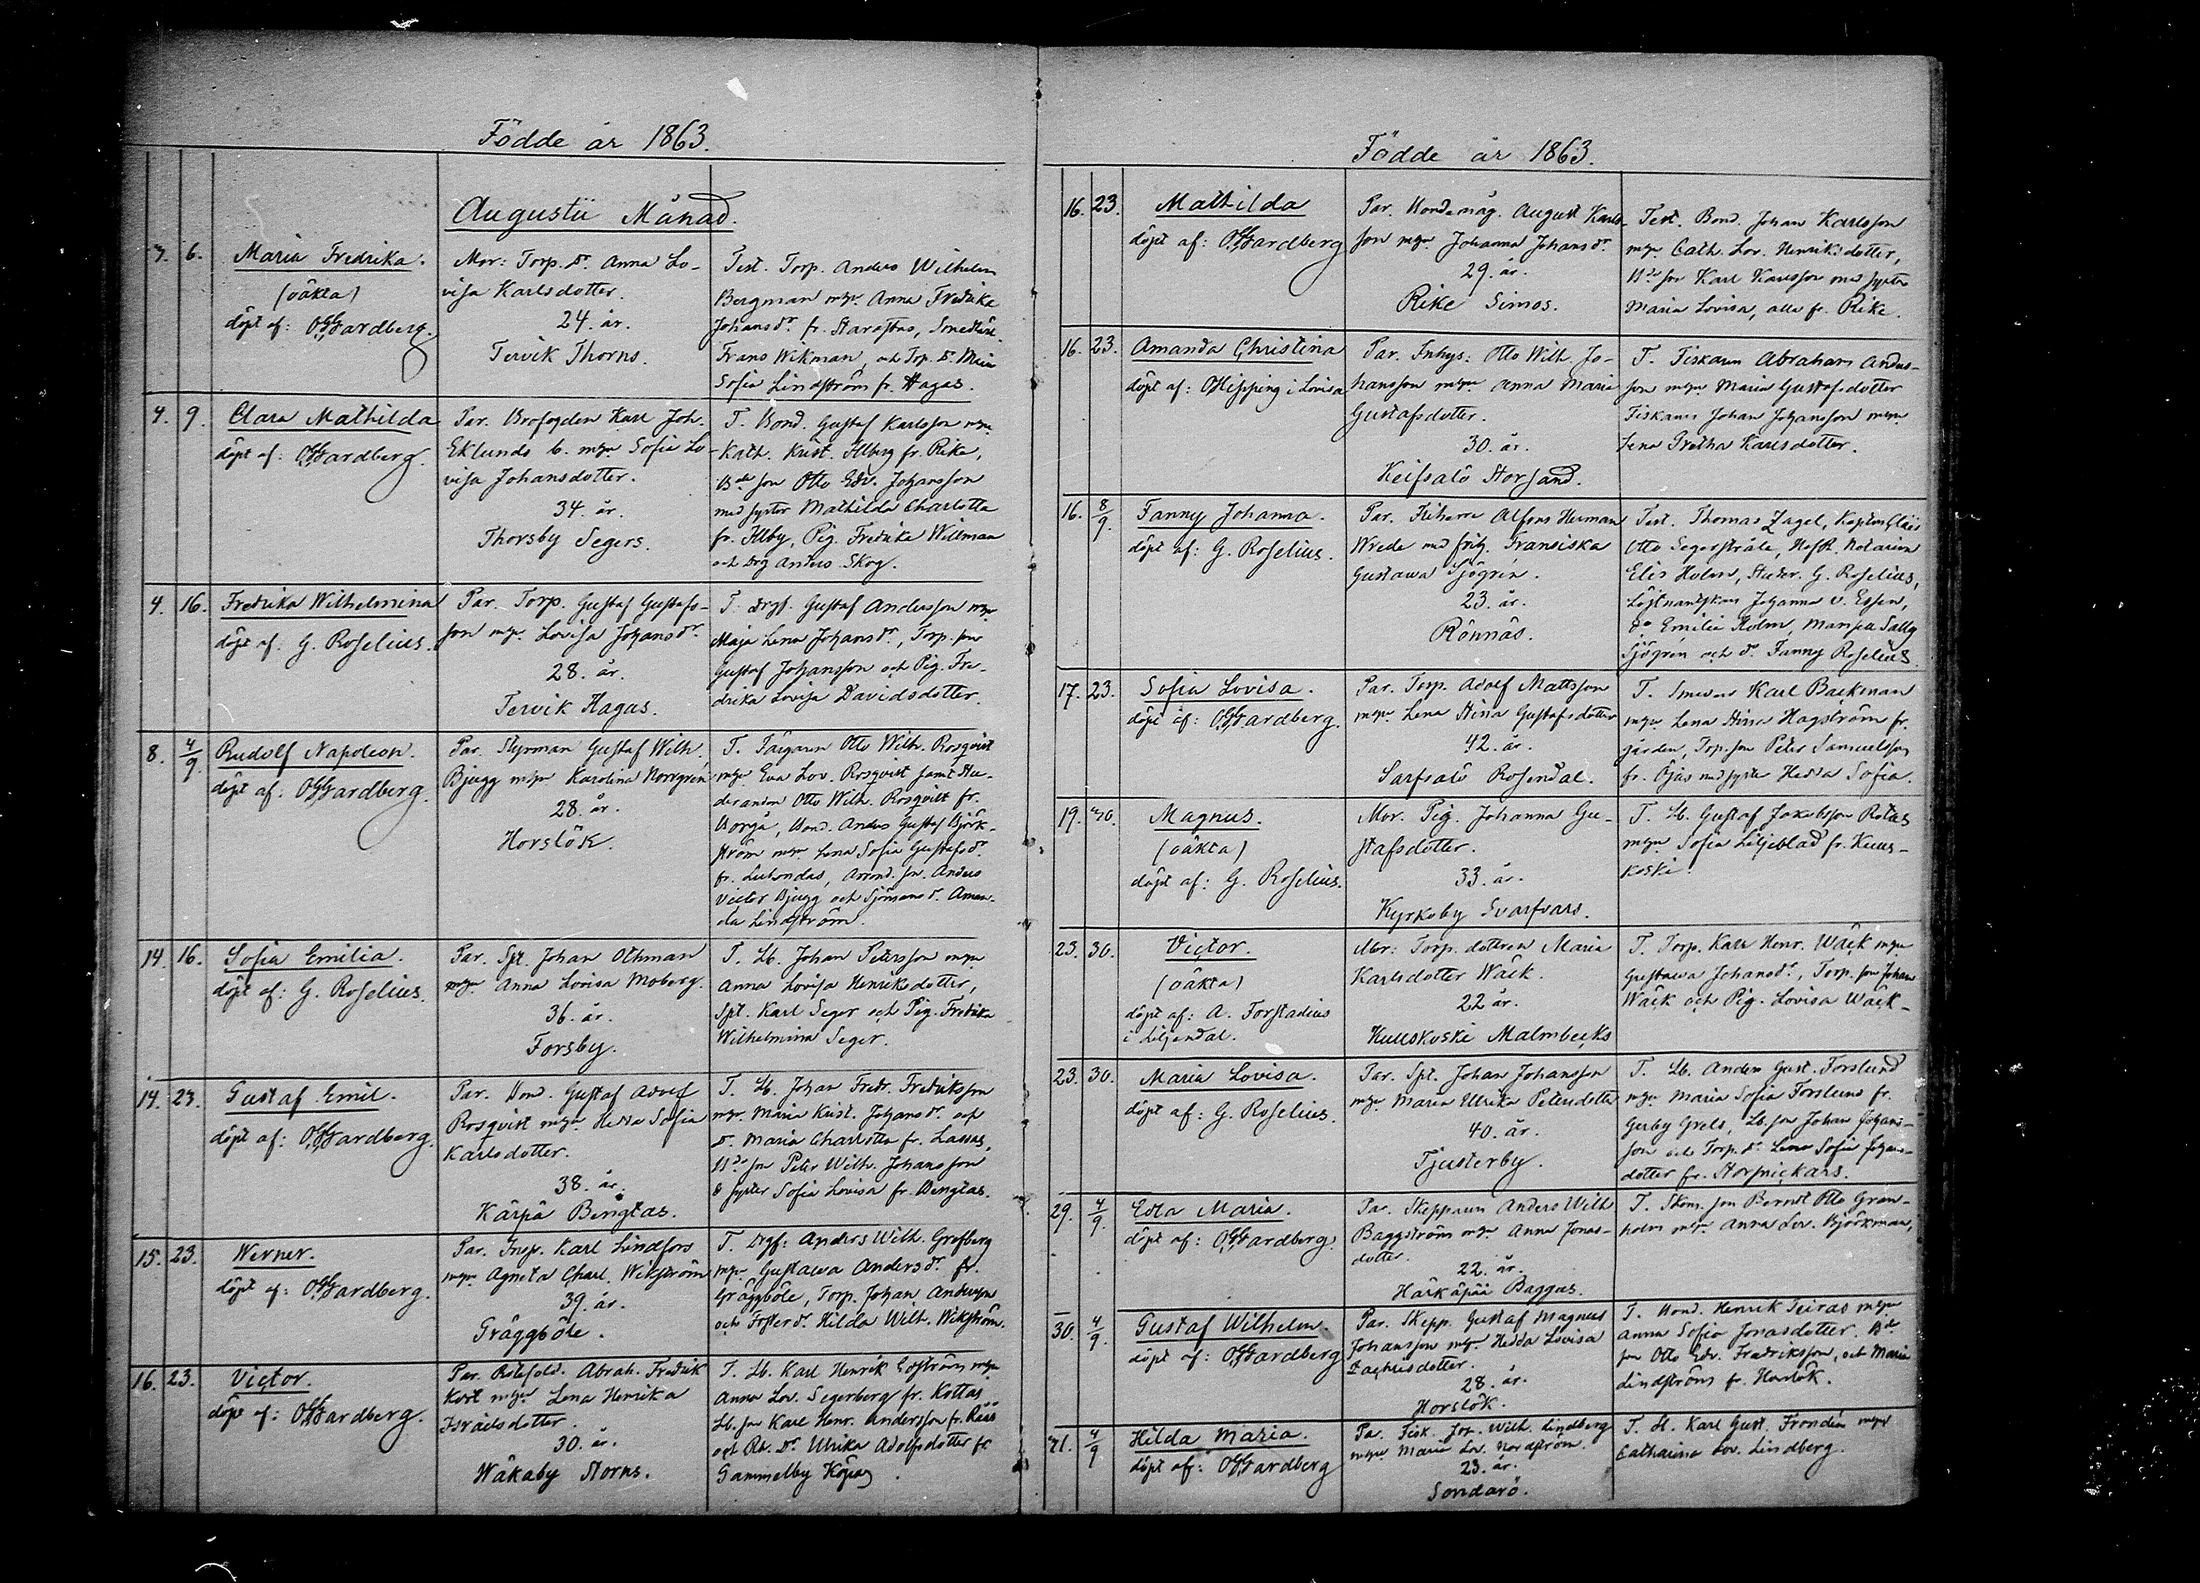 Födde år 1863.
Augustii Månad.
3. 6. Maria Fredrika.
(oäkta)
döpt af: O. Gardberg.
Mor: Torp. dr. Anna Lo-
visa Karlsdotter.
24. år.
Tervik Thorns.
Test. Torp. Anders Wilhelm
Bergman m. h. Anna Fredrika
Johansdr. fr. Starastas,
Frans Wikman och Torp. dr. Maria
Sofia Lindström fr. Hagas.
4. 9. Clara Mathilda
döpt af: O. Gardberg.
Par. Brofogden Karl Joh.
Eklunds b. m. h. Sofia Lo-
visa Johansdotter.
34. år.
Thorsby Segers.
T. Bond. Gustaf Karlsson m. h.
Kath. Krist. Illberg fr. Rike,
Bde son Otto Edv. Johansson
med syster Mathilda Charlotta
fr. Illby, Pig. Fredrika Willman
och Drg Anders Skog.
4. 16. Fredrika Wilhelmina
döpt af: G. Roselius.
Par. Torp. Gustaf Gustafs-
son m. h. Lovisa Johansdr.
28. år.
Tervik Hagas.
T. Drgs. Gustaf Andersson m. h.
Maja Lena Johansdr., Torp. son
Gustaf Johansson och Pig. Fre-
drika Lovisa Davidsdotter.
8. 4/9. Rudolf Napoleon.
döpt af: O. Gardberg.
Par. Styrman Gustaf Wilh.
Bjugg m. h. Karolina Norrgrén
28. år.
Horslök.
T. Färgaren Otto Wilh. Rosqvist
m. h. Eva Lov. Rosqvist samt Stu-
deranden Otto Wilh. Rosqvist fr.
Borgå, Bond. Anders Gustaf Björk-
ström m. h. Lena Sofia Gustafsdr.
fr. son Anders
Victor Bjugg och Sjömansdr. Aman-
da Lindström.
14. 16. Sofia Emilia.
döpt af: G. Roselius.
Par. Spt. Johan Othman
m. h. Anna Lovisa Moberg.
36. år.
Forsby.
T. Lb. Johan Petersson m. h.
Anna Lovisa Henriksdotter,
Spt. Karl Seger och Pig. Fredrika
Wilhelmina Seger.
14. 23. Gustaf Emil.
döpt af: O. Gardberg.
Par. Bond. Gustaf Adolf
Rosqvist m. h. Hedda Sofia
Karlsdotter.
38. år.
Kärpä Bengtas.
T. Lb. Johan Fredr. Fredriksson
m. h. Maria Krist. Johansdr. och
dr. Maria Charlotta fr. Lassas,
Bde son Peter Wilh. Johansson
& syster Sofia Lovisa fr. Bengtas.
15. 23. Werner.
döpt af: O. Gardberg.
Par. Insp. Karl Lindfors
m. h. Agneta Charl. Wikström
39. år.
Gräggböle.
T. Drgs: Anders Wilh. Grefberg
m. h. Gustawa Andersdr. fr.
Gräggböle, Torp. Johan Andersson
och Fosterdr. Hilda Wilh. Wikström.
16. 23. Victor.
döpt af: O. Gardberg.
Par. Rotesold. Abrah. Fredrik
Kort m. h. Lena Henrika
Israelsdotter.
30. år.
Wåkaby Storns.
T. Lb. Karl Henrik Edström m. h.
Anna Lov. Segerberg fr. Kottas
Lb. son Karl Henr. Andersson fr.
och Rb. dr Ulrika Adolfsdotter fr
Gammelby
Födde år 1863.
16. 23. Mathilda
döpt af: O. Gardberg
Par. Bondemåg. August Karls-
son m. h. Johanna Johansdr.
29. år.
Rike Simos.
Test. Bond. Johan Karlsson
m. h. Cath. Lov. Henriksdotter,
Bde son Karl Karlsson med syster
Maria Lovisa, alla fr. Rike.
16. 23. Amanda Christina
döpt af: O. Hipping i Lovisa
Par. Inhys: Otto Wilh. Jo-
hansson m. h. Anna Maria
Gustafsdotter.
30. år.
Keifsalö Storsand.
T. Fiskaren Abraham Anders-
son m. h. Maria Gustafsdotter
Fiskaren Johan Johansson m. h.
Lena Gretha Karlsdotter.
16. 8/9. Fanny Johanna.
döpt af: G. Roselius.
Par. Friherre Alfons Herman
Wrede med frih. Fransiska
Gustawa Sjögrén.
23. år.
Rönnäs.
Test. Thomas Zagel,
Otto Segerstråle, HofR. Notarien
Elis Holm, Studer. G. Roselius,
Löjtnantskan Johanna v. Essen,
do Emilia Holm, Mamsell Sally
Sjögrén och d. Fanny Roselius
17. 23. Sofia Lovisa.
döpt af: O. Gardberg.
Par. Torp. Adolf Mattsson
m. h. Lena Stina Gustafsdotter
42. år.
Sarfsalö Rosendal.
T. Smeden Karl Backman
m. h. Lena Stina Hagström fr.
gården, Torp. son Peter Samuelsson
fr. Öjas med syster Hedda Sofia.
19. 30. Magnus.
(oäkta)
döpt af: G. Roselius.
Mor. Pig. Johanna Gu-
stafsdotter.
33. år.
Kyrkoby Svarfvars.
T. Lb. Gustaf Jakobsson Rotas
m. h. Sofia Liljeblad fr. Kuus-
koski.
23. 30. Victor.
(oäkta)
döpt af: A. Forstadius
i Liljendal.
Mor: Torp. dottren Maria
Karlsdotter Wäck.
22 år.
Kuuskoski Malmbecks
T. Torp. Karl Henr. Wäck m. h.
Gustawa Johansdr., Torp. son Johan
Wäck och Pig. Lovisa Wäck.
23. 30. Maria Lovisa.
döpt af: G. Roselius.
Par. Spt. Johan Johansson
m. h. Maria Ulrika Petersdotter
40. år.
Tjusterby.
T. Lb. Anders Gust. Forslund
m. h. Maria Sofia Forslund fr.
Gerby Grels, Lb. son Johan Johans-
son och Torp. dr. Lena Sofia Johans-
dotter fr. Storpickars.
29. 4/9. Edla Maria.
döpt af: O. Gardberg.
Par. Skepparen Anders Wilh
Baggström m. h. Anna Jonas-
dotter.
22. år.
Härkäpää Baggas.
T. Skom. son Berndt Otto Gran-
holm m. h. Anna Lov. Björkman,
30. 4/9. Gustaf Wilhelm.
döpt af: O. Gardberg
Par. Skepp. Gustaf Magnus
Johansson m. h. Hedda Lovisa
Zachrisdotter.
28. år.
Horslök.
T. Bond. Henrik Teiras m. h.
Anna Sofia Jonasdotter. Bde
son Otto Edv. Fredriksson, och Maria
Lindström fr. Horslök.
31. 4/9 Hilda Maria.
döpt af: O. Gardberg
Par. Fisk. Joh. Wilh. Lindberg
m. h. Maria Lov. Nordström.
23. år.
Sondarö.
T. Lb. Karl Gust. Frondén m. h.
Catharina Lov. Lindberg.